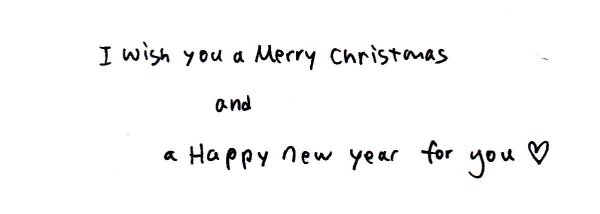 I wish you a Merry Christmas
and
a Happy new year for you ♡